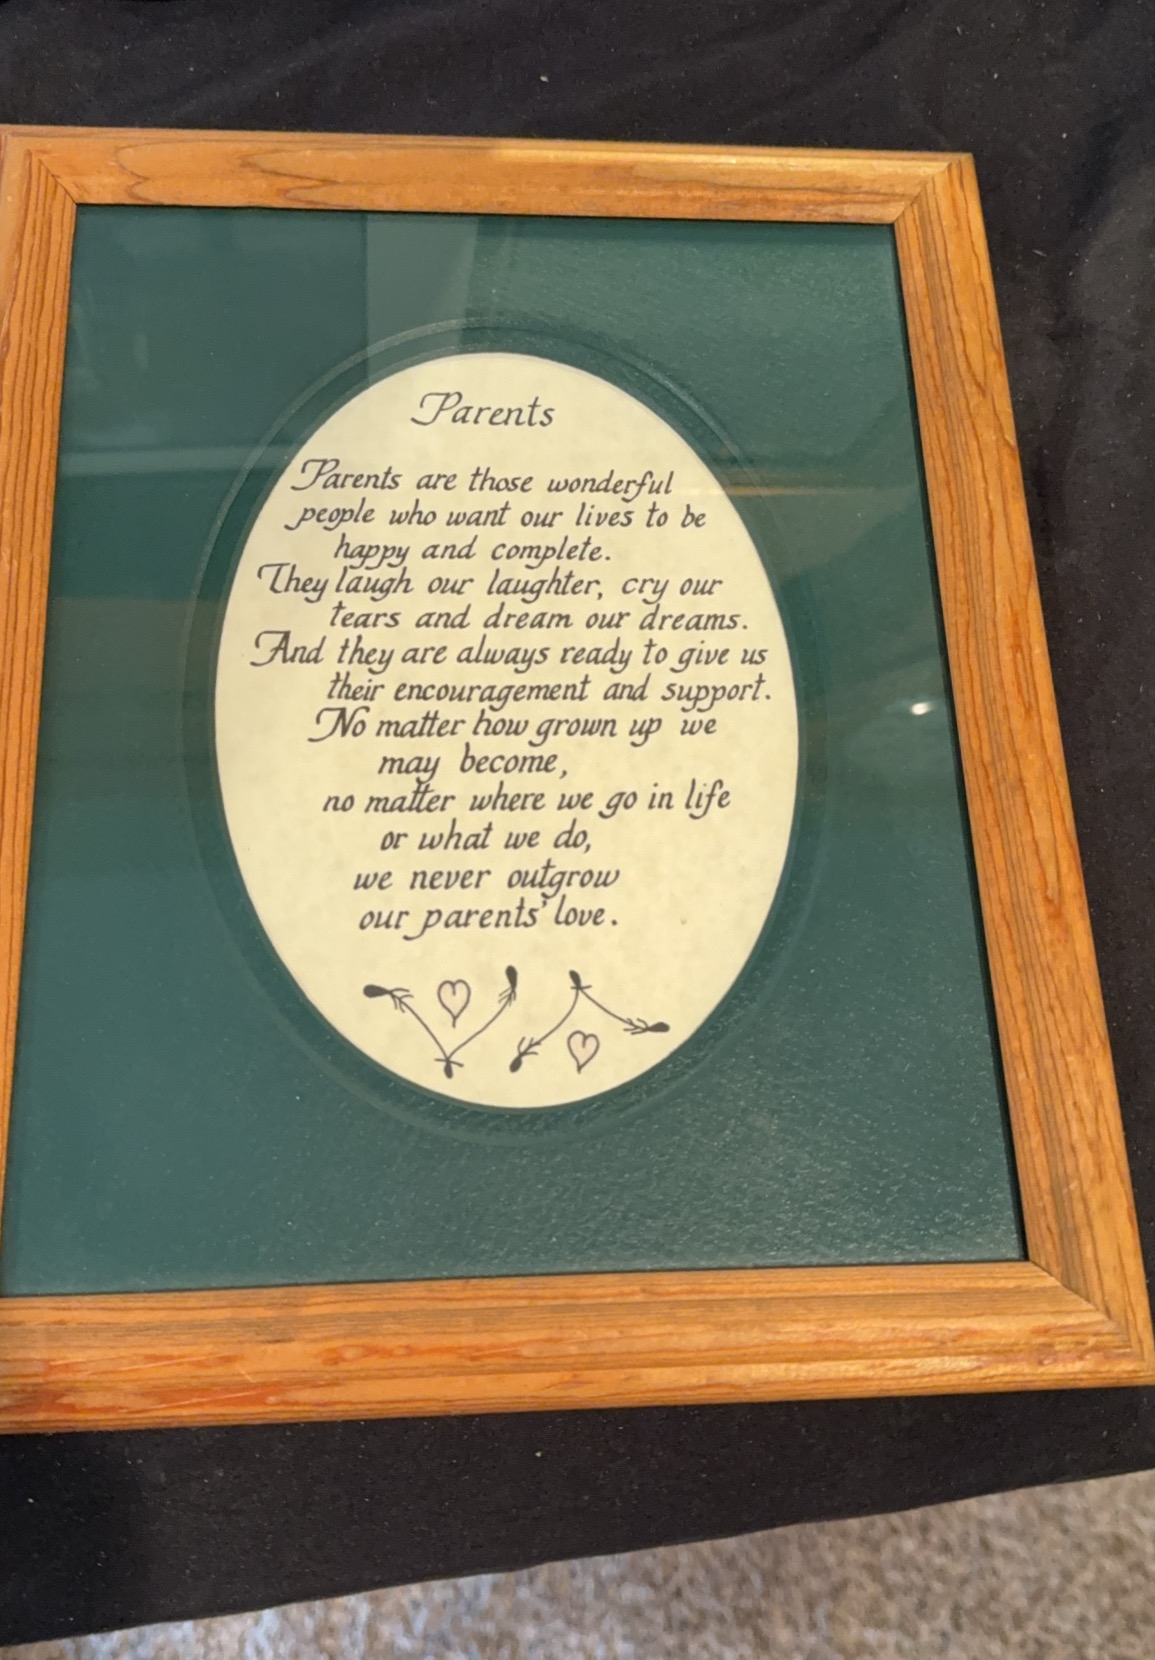 Parents
Parents are those wonderful
people who want our lives to be
happy and complete.
They laugh our laughter, cry our
tears and dream our dreams.
And they are always ready to give us
their encouragement and support.
No matter how grown up we
may become,
no matter where we go in life
or what we do,
we never outgrow
our parents' love.